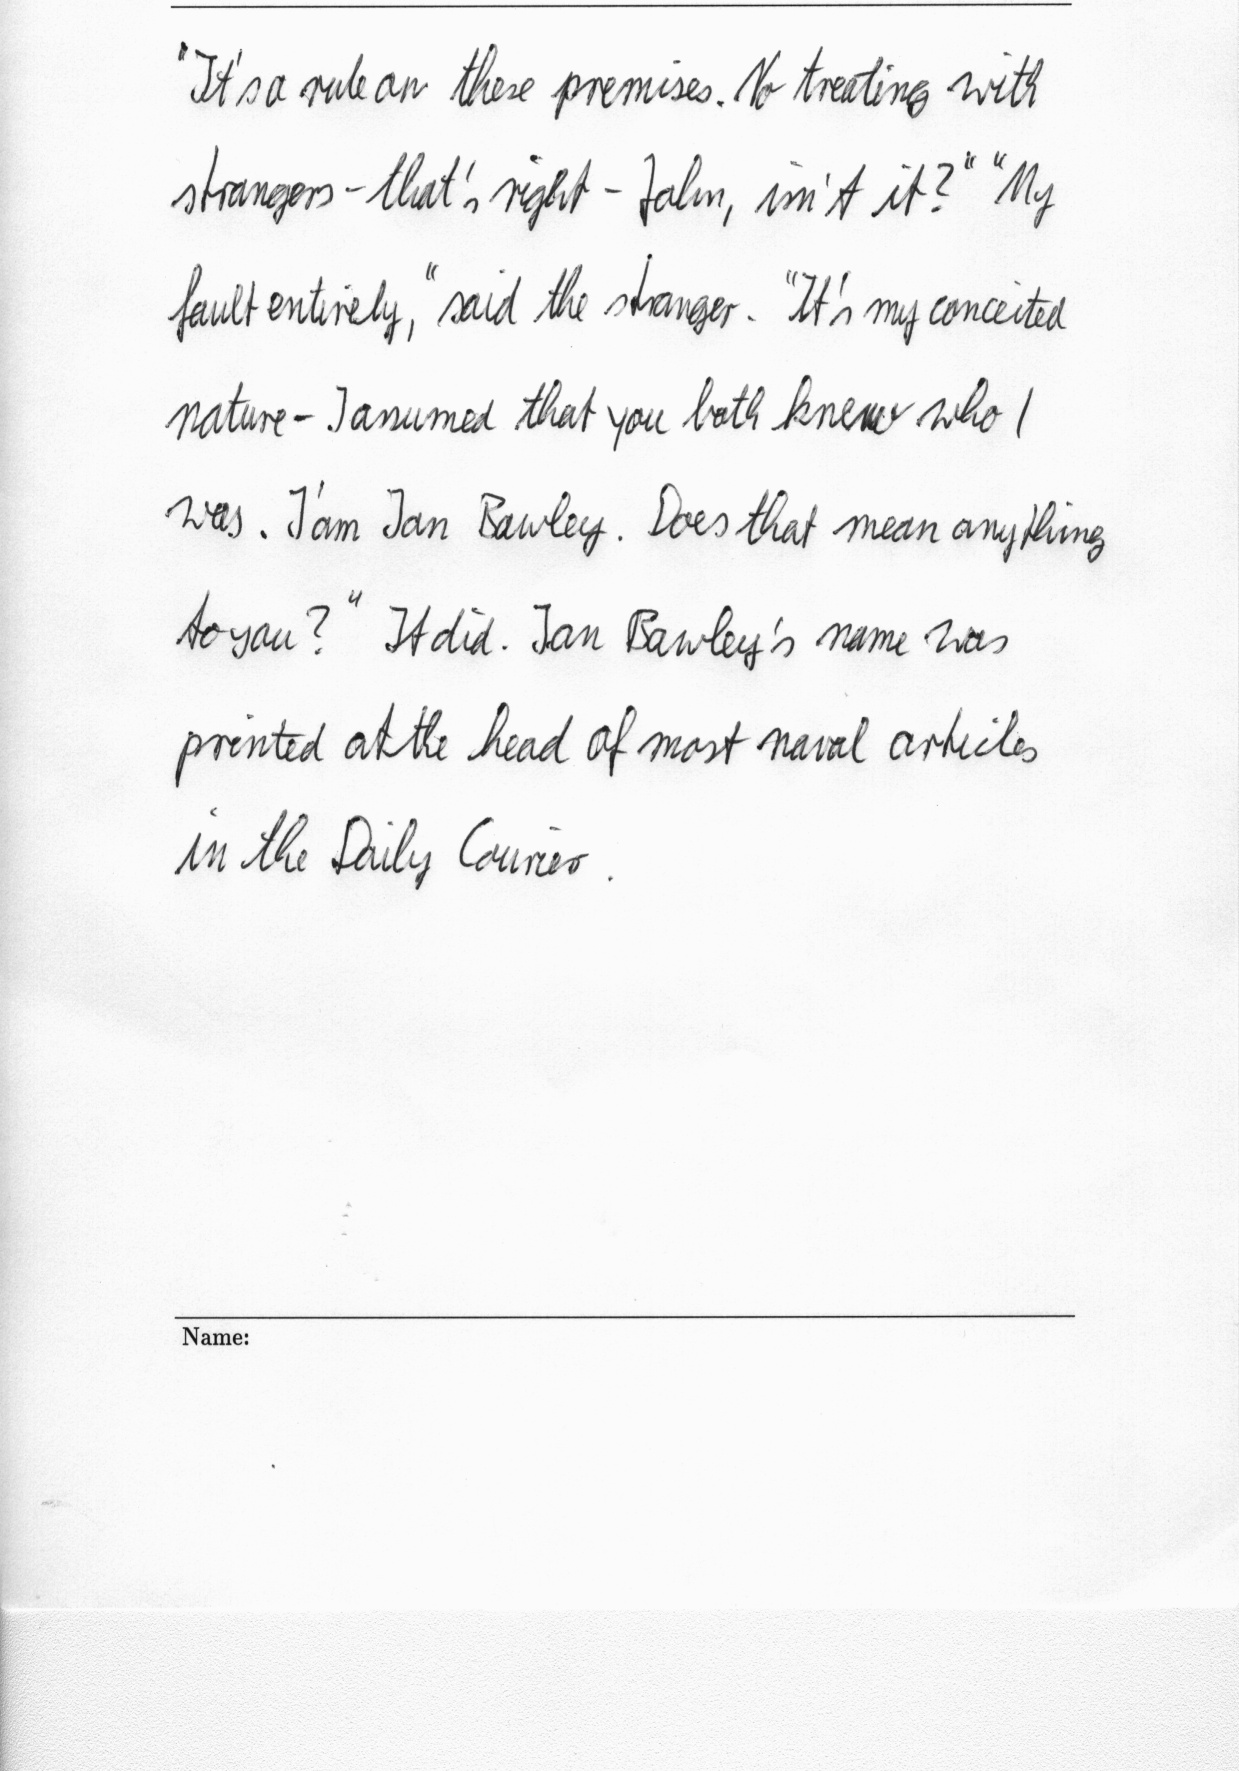 "It's a rule on these premises. No treating with
strangers - that's right - John, isn't it?" "My
fault entirely," said the stranger. "It's my conceited
nature - I assumed that you both knew who I
was. I'am Ian Bawley. Does that mean anything
to you?" It did. Ian Bawley's name was
printed at the head of most naval articles
in the Daily Courier.
Name: